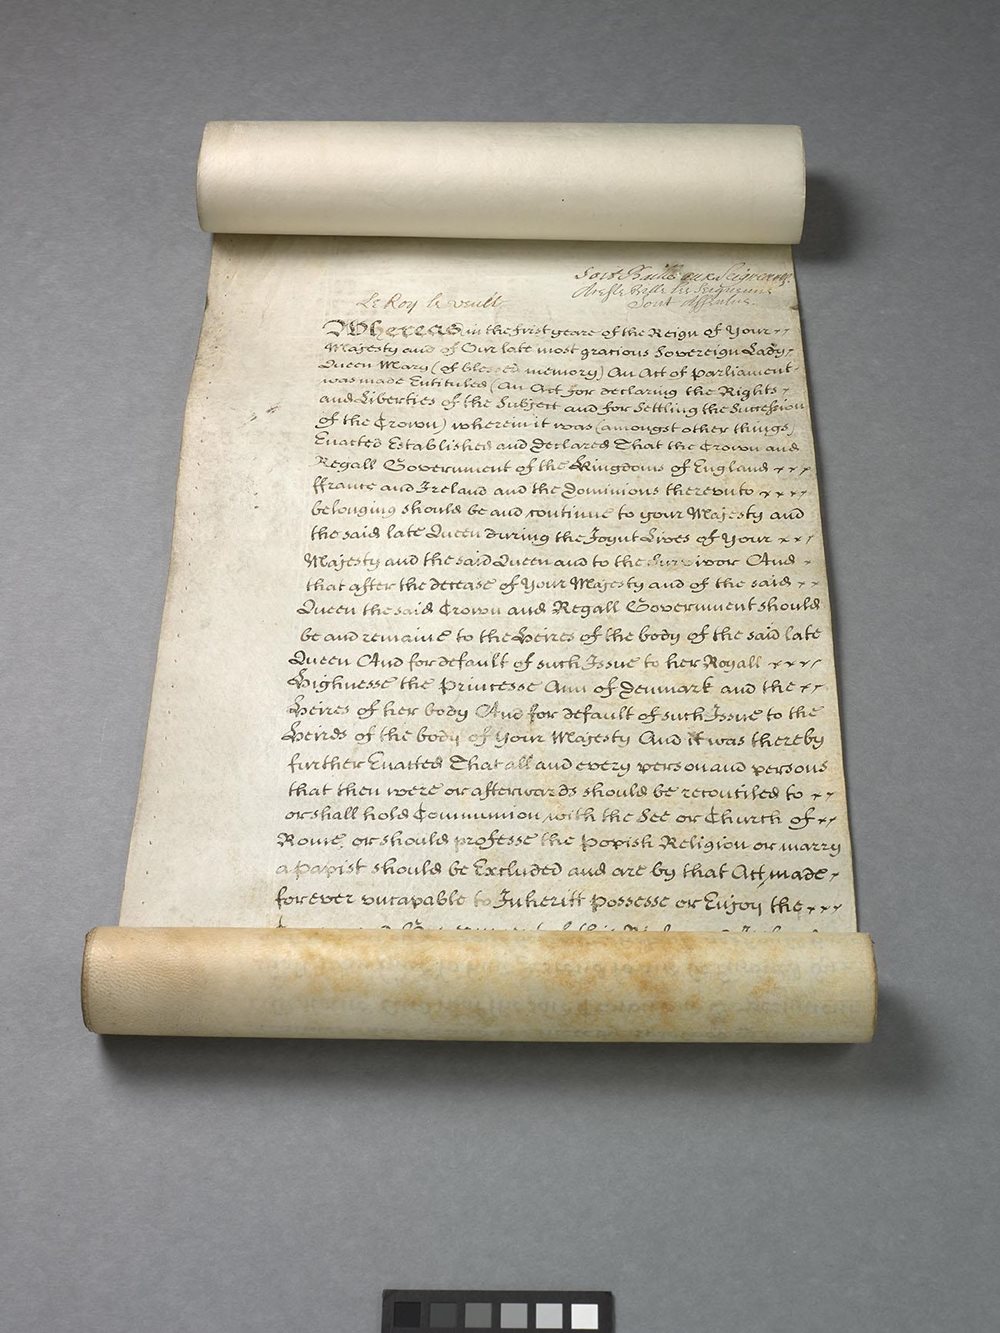 Soit Baillé aux Seigneurs
A ceste Bille les Seigneurs
Sont Assentus.
Le Roy le veult
Whereas in the first yeare of the Reign of Your
Majesty and of Our late most gracious Sovereign Lady
Queen Mary (of blessed memory) An Act of Parliament
was made Entituled (An Act for declaring the Rights
and Liberties of the Subject and for Settling the Succession
of the Crown) wherein it was (amongst other things)
Enacted Established and Declared That the Crown and
Regall Government of the Kingdoms of England
ffrance and Ireland and the Dominions thereunto
belonging should be and continue to your Majesty and
the said late Queen during the Joynt Lives of Your
Majesty and the said Queen and to the Survivor And
that after the decease of Your Majesty and of the said
Queen the said Crown and Regall Government should
be and remaine to the Heires of the body of the said late
Queen And for default of such Issue to her Royall
Highnesse the Princesse Ann of Denmark and the
Heires of her body And for default of such Issue to the
Heires of the body of Your Majesty And it was thereby
further Enacted That all and every person and persons
that then were or afterwards should be reconciled to
or shall hold Communion with the See or Church of
Rome, or should professe the Popish Religion or marry
a Papist should be Excluded and are by that Act made
forever uncapable to Inheritt Possesse or Enjoy the